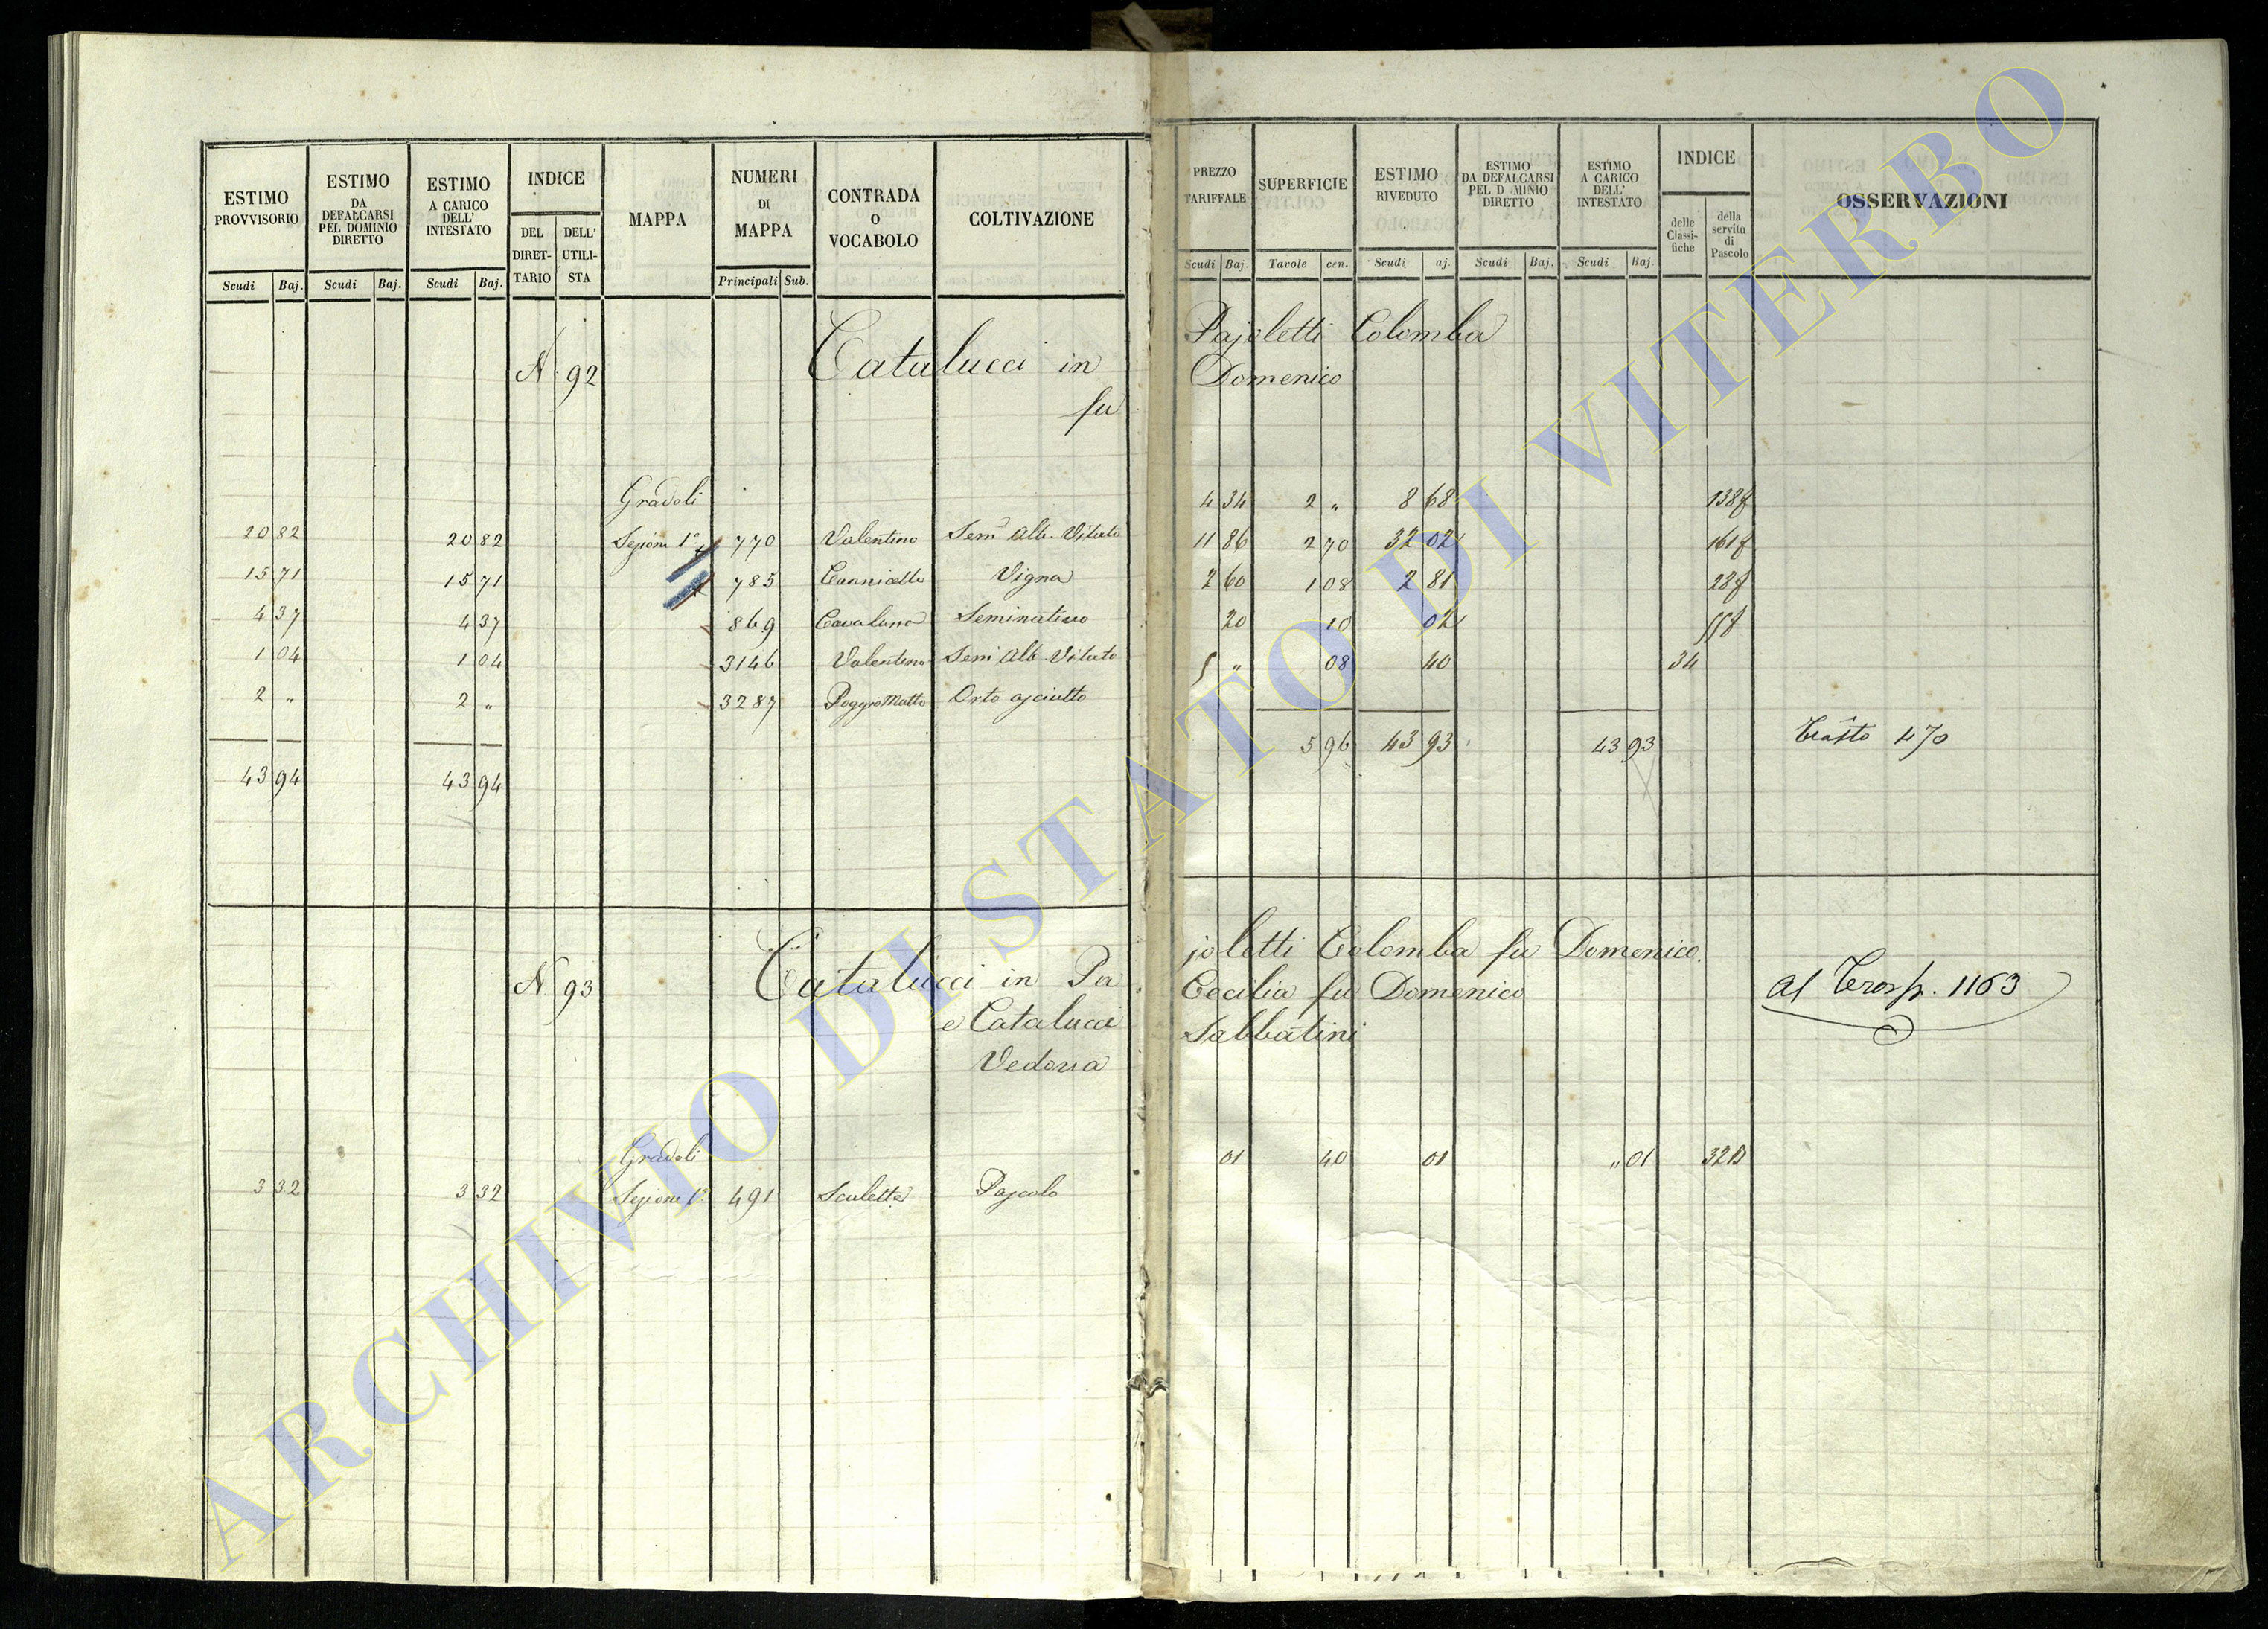 ESTIMO PROVVISORIO
ESTIMO DA DEFALCARSI PEL DOMINIO DIRETTO
ESTIMO A CARICO DELL' INTESTATO
INDICE
DEL DIRETTARIO
DELL' UTILISTA
MAPPA
NUMERI DI MAPPA
CONTRADA O VOCABOLO
COLTIVAZIONE
Scudi Baj. Scudi Baj. Scudi Baj. Principali Sub.
PREZZO TARIFFALE
SUPERFICIE
ESTIMO RIVEDUTO
ESTIMO DA DEFALCARSI PEL D MINIO DIRETTO
ESTIMO A CARICO DELL' INTESTATO
INDICE
delle Classifiche
della servitù di Pascolo
OSSERVAZIONI
Scudi Baj. Tavole cen. Scudi aj. Scudi Baj. Scudi Baj.
N. 92 Catalucci in Pajoletti Colomba
fu Domenico
Gradoli
20 82 20 82 Sezione 1a 770 Valentino Semo Alb. Vitato 4 34 2 " 8 68 138f
15 71 15 71 785 Vigna 11 86 2 70 32 02 161f
4 37 4 37 869 Seminativo 2 60 1 08 2 81 28f
1 04 1 04 3146 Valentino Semi Alb. Vitato 20 10 02
2 " 2 " 3287 Poggio Matto Orto asciutto 5 " 08 40 34
43 94 43 94 5 96 43 93 43 93 470
N 93 Catalucci in Pajoletti Colomba fu Domenico.
e Catalucci Cecilia fu Domenico
Vedova Sabbatini
al Trasp. 1163
Gradoli
3 32 3 32 Sezione 1a 491 Scalette Pascolo 01 40 01 " 01 32B
ARCHIVIO DI STATO DI VITERBO